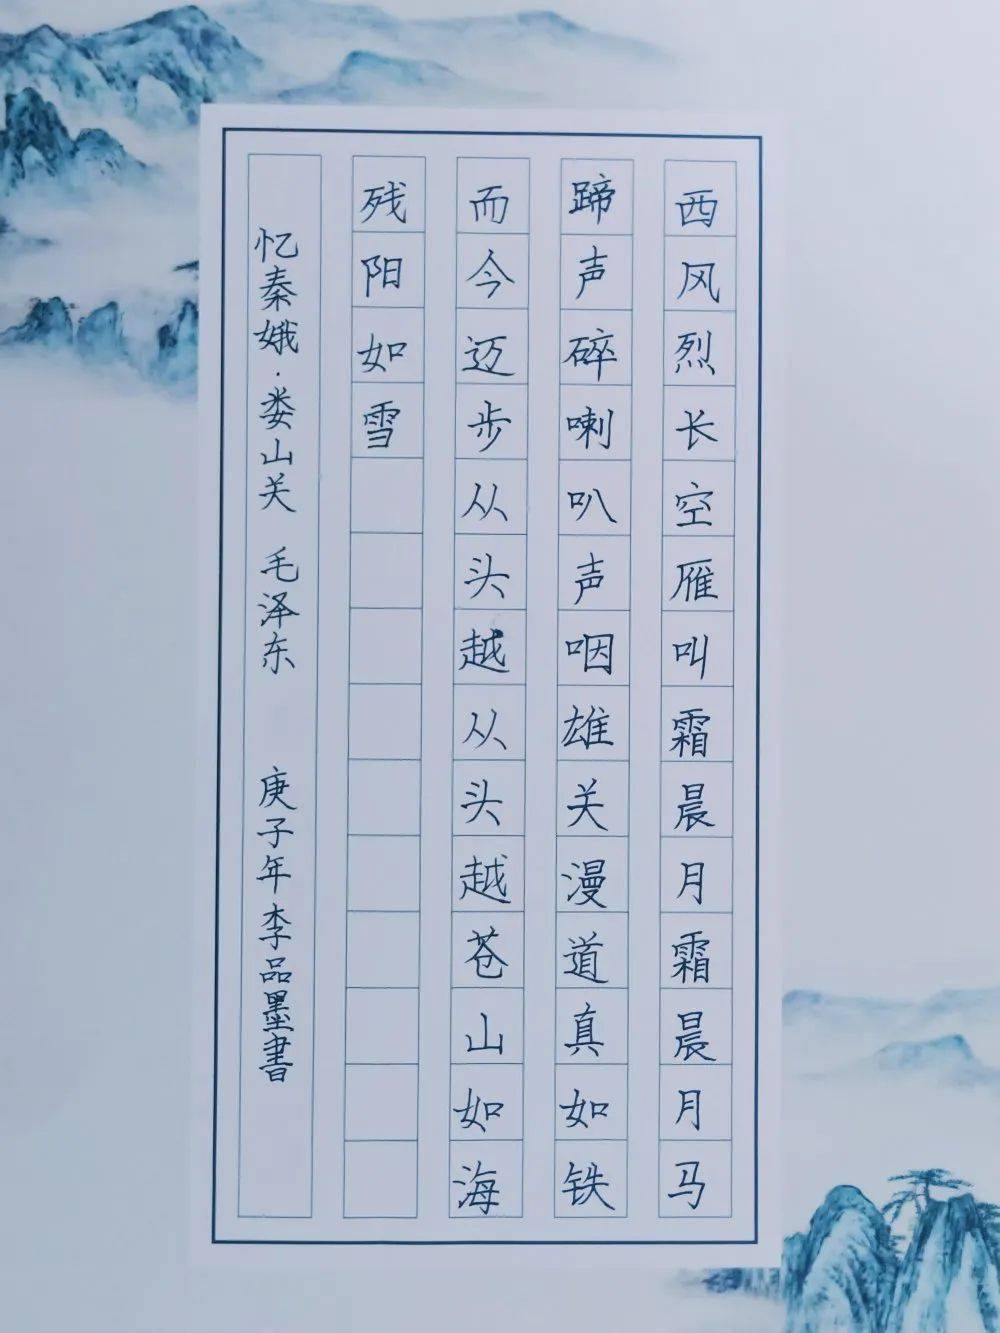 西风烈长空雁叫霜晨月霜晨月马
蹄声碎喇叭声咽雄关漫道真如铁
而今迈步从头越从头越苍山如海
残阳如雪
忆秦娥·娄山关 毛泽东 庚子年李品墨書